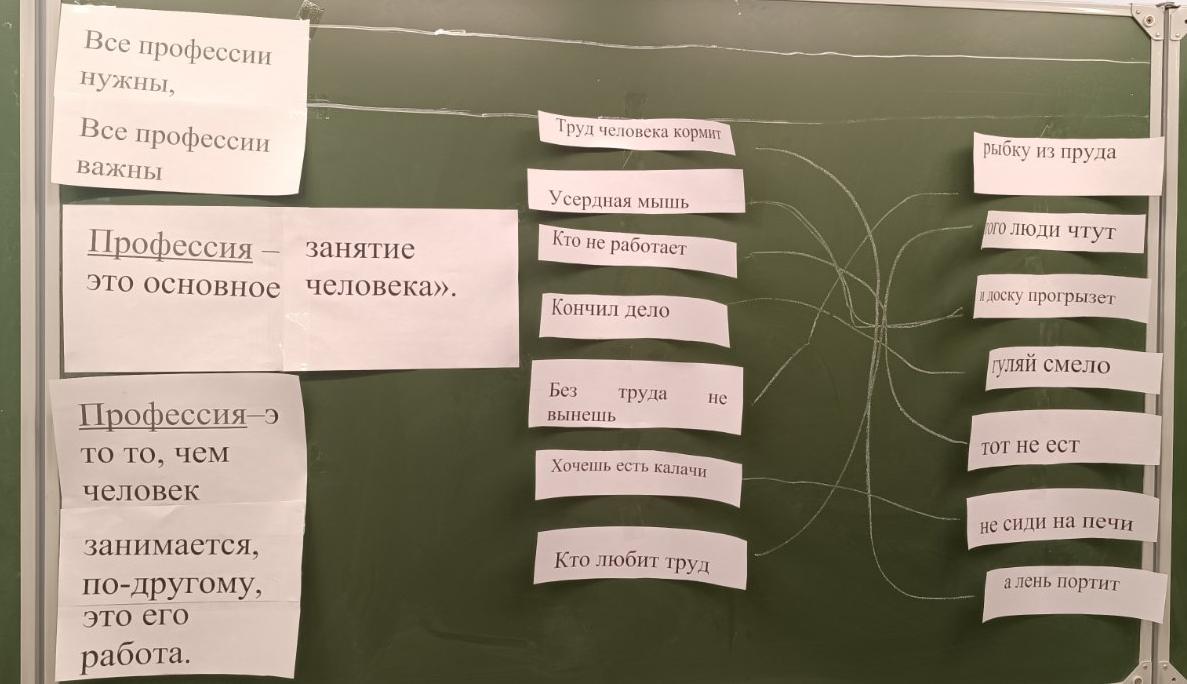 Все профессии
нужны,
Все профессии
важны
Профессия – занятие
это основное человека».
Профессия–э
то то, чем
человек
занимается,
по-другому,
это его
работа.
Труд человека кормит
Усердная мышь
Кто не работает
Кончил дело
Без труда не
вынешь
Хочешь есть калачи
Кто любит труд
рыбку из пруда
того люди чтут
и доску прогрызет
гуляй смело
тот не ест
не сиди на печи
а лень портит